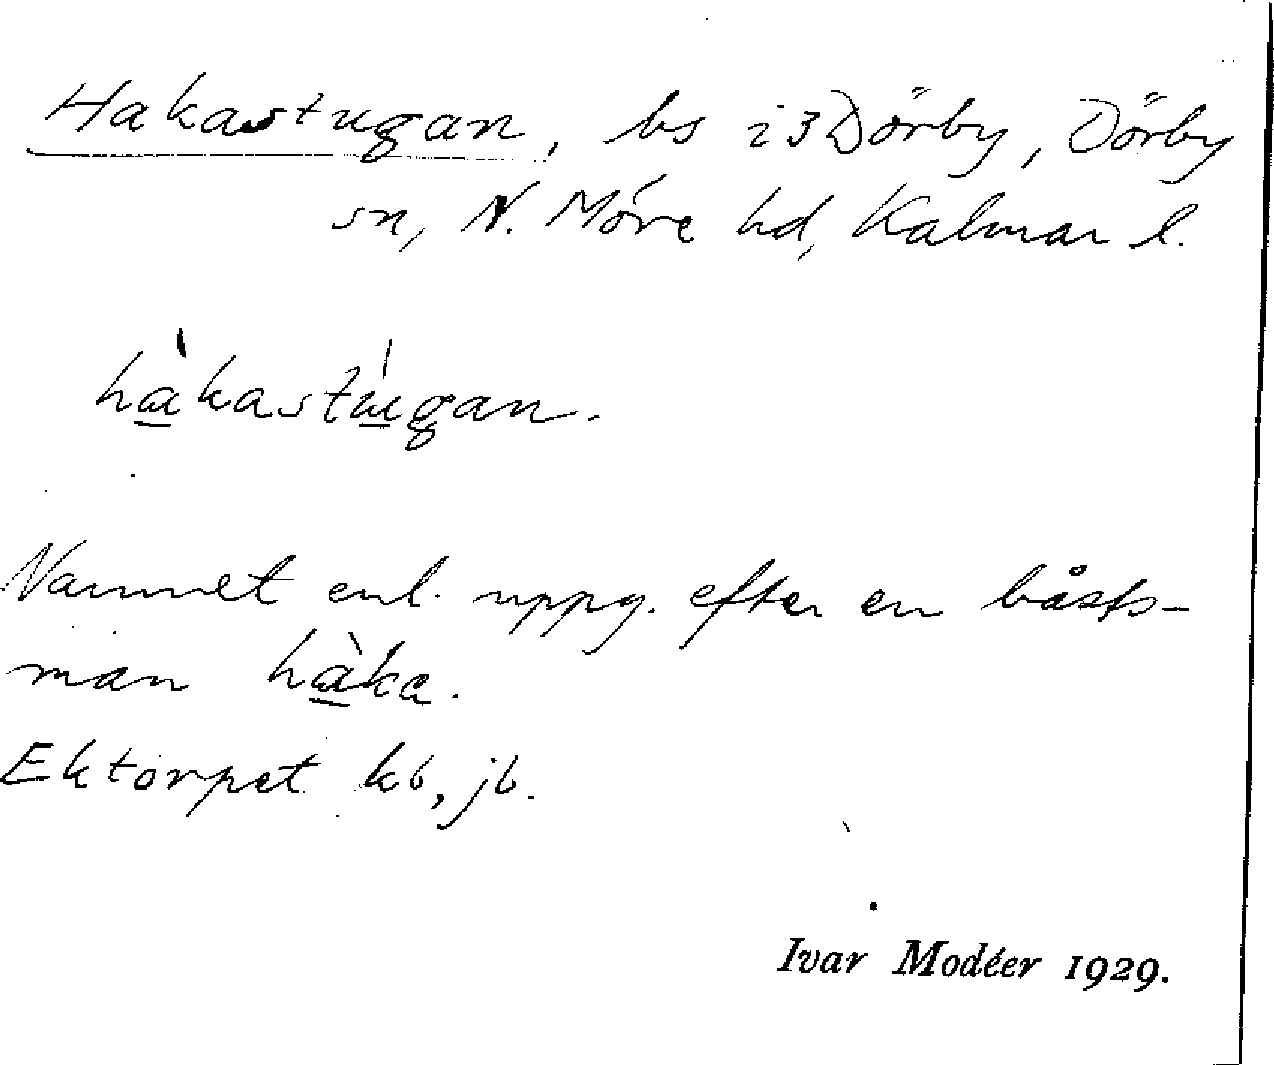 Hakastugan, bs i 3 Dörby, Dörby
sn, N. Möre hd, Kalmar l.
hàkastúgan.
Namnet enl. uppg. efter en båts-
man hàka.
Ektorpet kb, jb.
Ivar Modéer 1929.